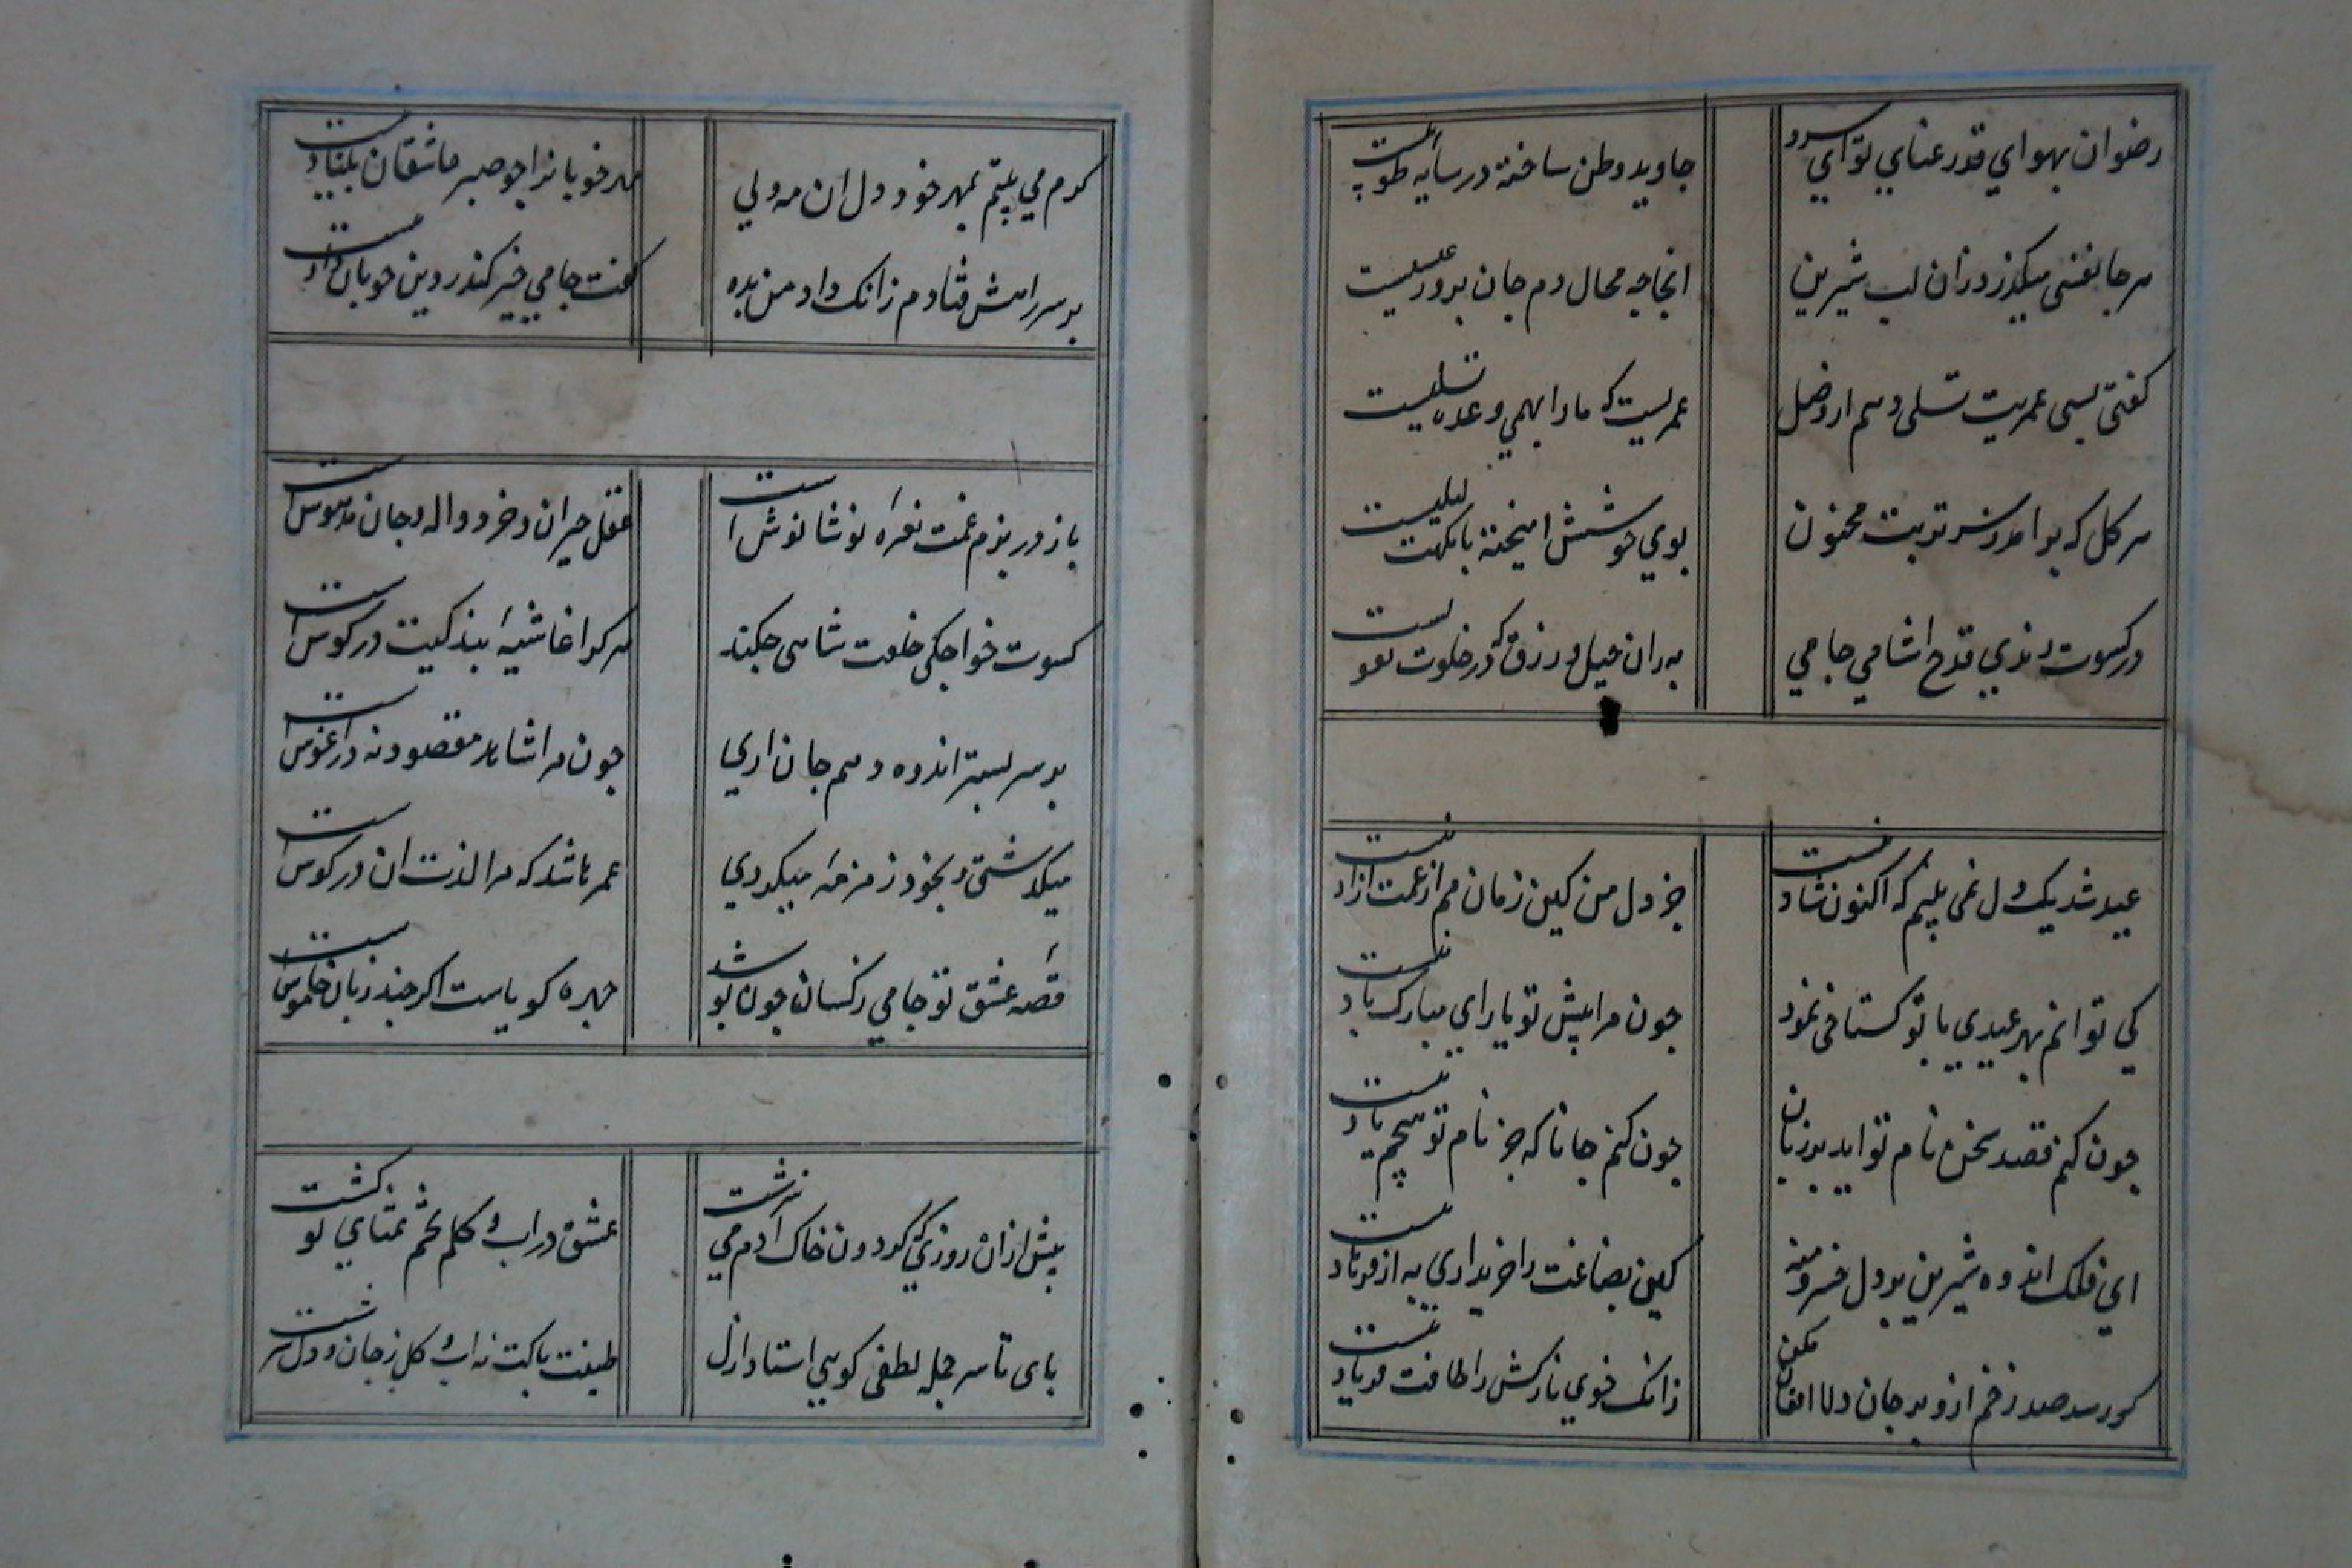 رضوان بهواي قد رعناي تو اي سرو
جاويد وطن ساخته در سايه طوبيست
هر جا نفسي ميكذرد زان لب شيرين
انجا چه محال دم جان پرور عيسيست
كفتي بسي عمريت تسلي دهم از وصل
عمريست كه ما را بهمي وعده تسليست
هر كل كه بر امد ز سر تربت مجنون
بوي خوشش اميخته با نكهت ليليست
در كسوت رندي قدح اشامي جامي
به زان حيل و زرق كه در خلوت
عيد شد يك دل نمي بينم كه اكنون شاد نيست
جز دل من كين زمان هم از غمت ازاد نيست
كي توانم بهر عيدي با تو كستاخي نمود
چون مرا پيش تو ياراي مبارك باد نيست
چون كنم قصد سخن نام تو ايد بر زبان
چون كنم جانا كه جز نام تو هيچم ياد نيست
اي فلك اندوه شيرين بر دل خسرو منه
كين بضاعت را خريداري به از فرهاد نيست
كر رسد صد زخم ازو بر جان دلا افغان مكن
زانك خوي نازكش را طاقت فرياد نيست
كرم مي بينم بمهر خود دل ان مه ولي
مهر خوبانرا چو صبر عاشقان بنياد نيست
بر سر راهش فتادم زانك داد من بده
كفت جامي خيز كندر دين خوبان داد نيست
باز در بزم غمت نعره نوشا نوش است
عقل حيران و خرد واله و جان مدهوش است
كسوت خواجكي خلعت شاهي چكند
هر كرا غاشيه بندكيت در كوش است
بر سر بستر اندوه دهم جان اري
چون مرا شاهد مقصود نه در اغوش است
ميكذشتي و بخود زمزمه ميكردي
عمر باشد كه مرا لذت ان در كوش است
قصه عشق تو جامي ز كسان چون پوشد
چهره كوياست اكر چند زبان خاموش است
پيش ازان روزي كه كردون خاك ادم مي سرشت
عشق در اب و كلم تخم تمناي تو كشت
پاي تا سر جمله لطفي كويي استاد ازل
طينت پاكت نه اب و كل ز جان و دل سرشت